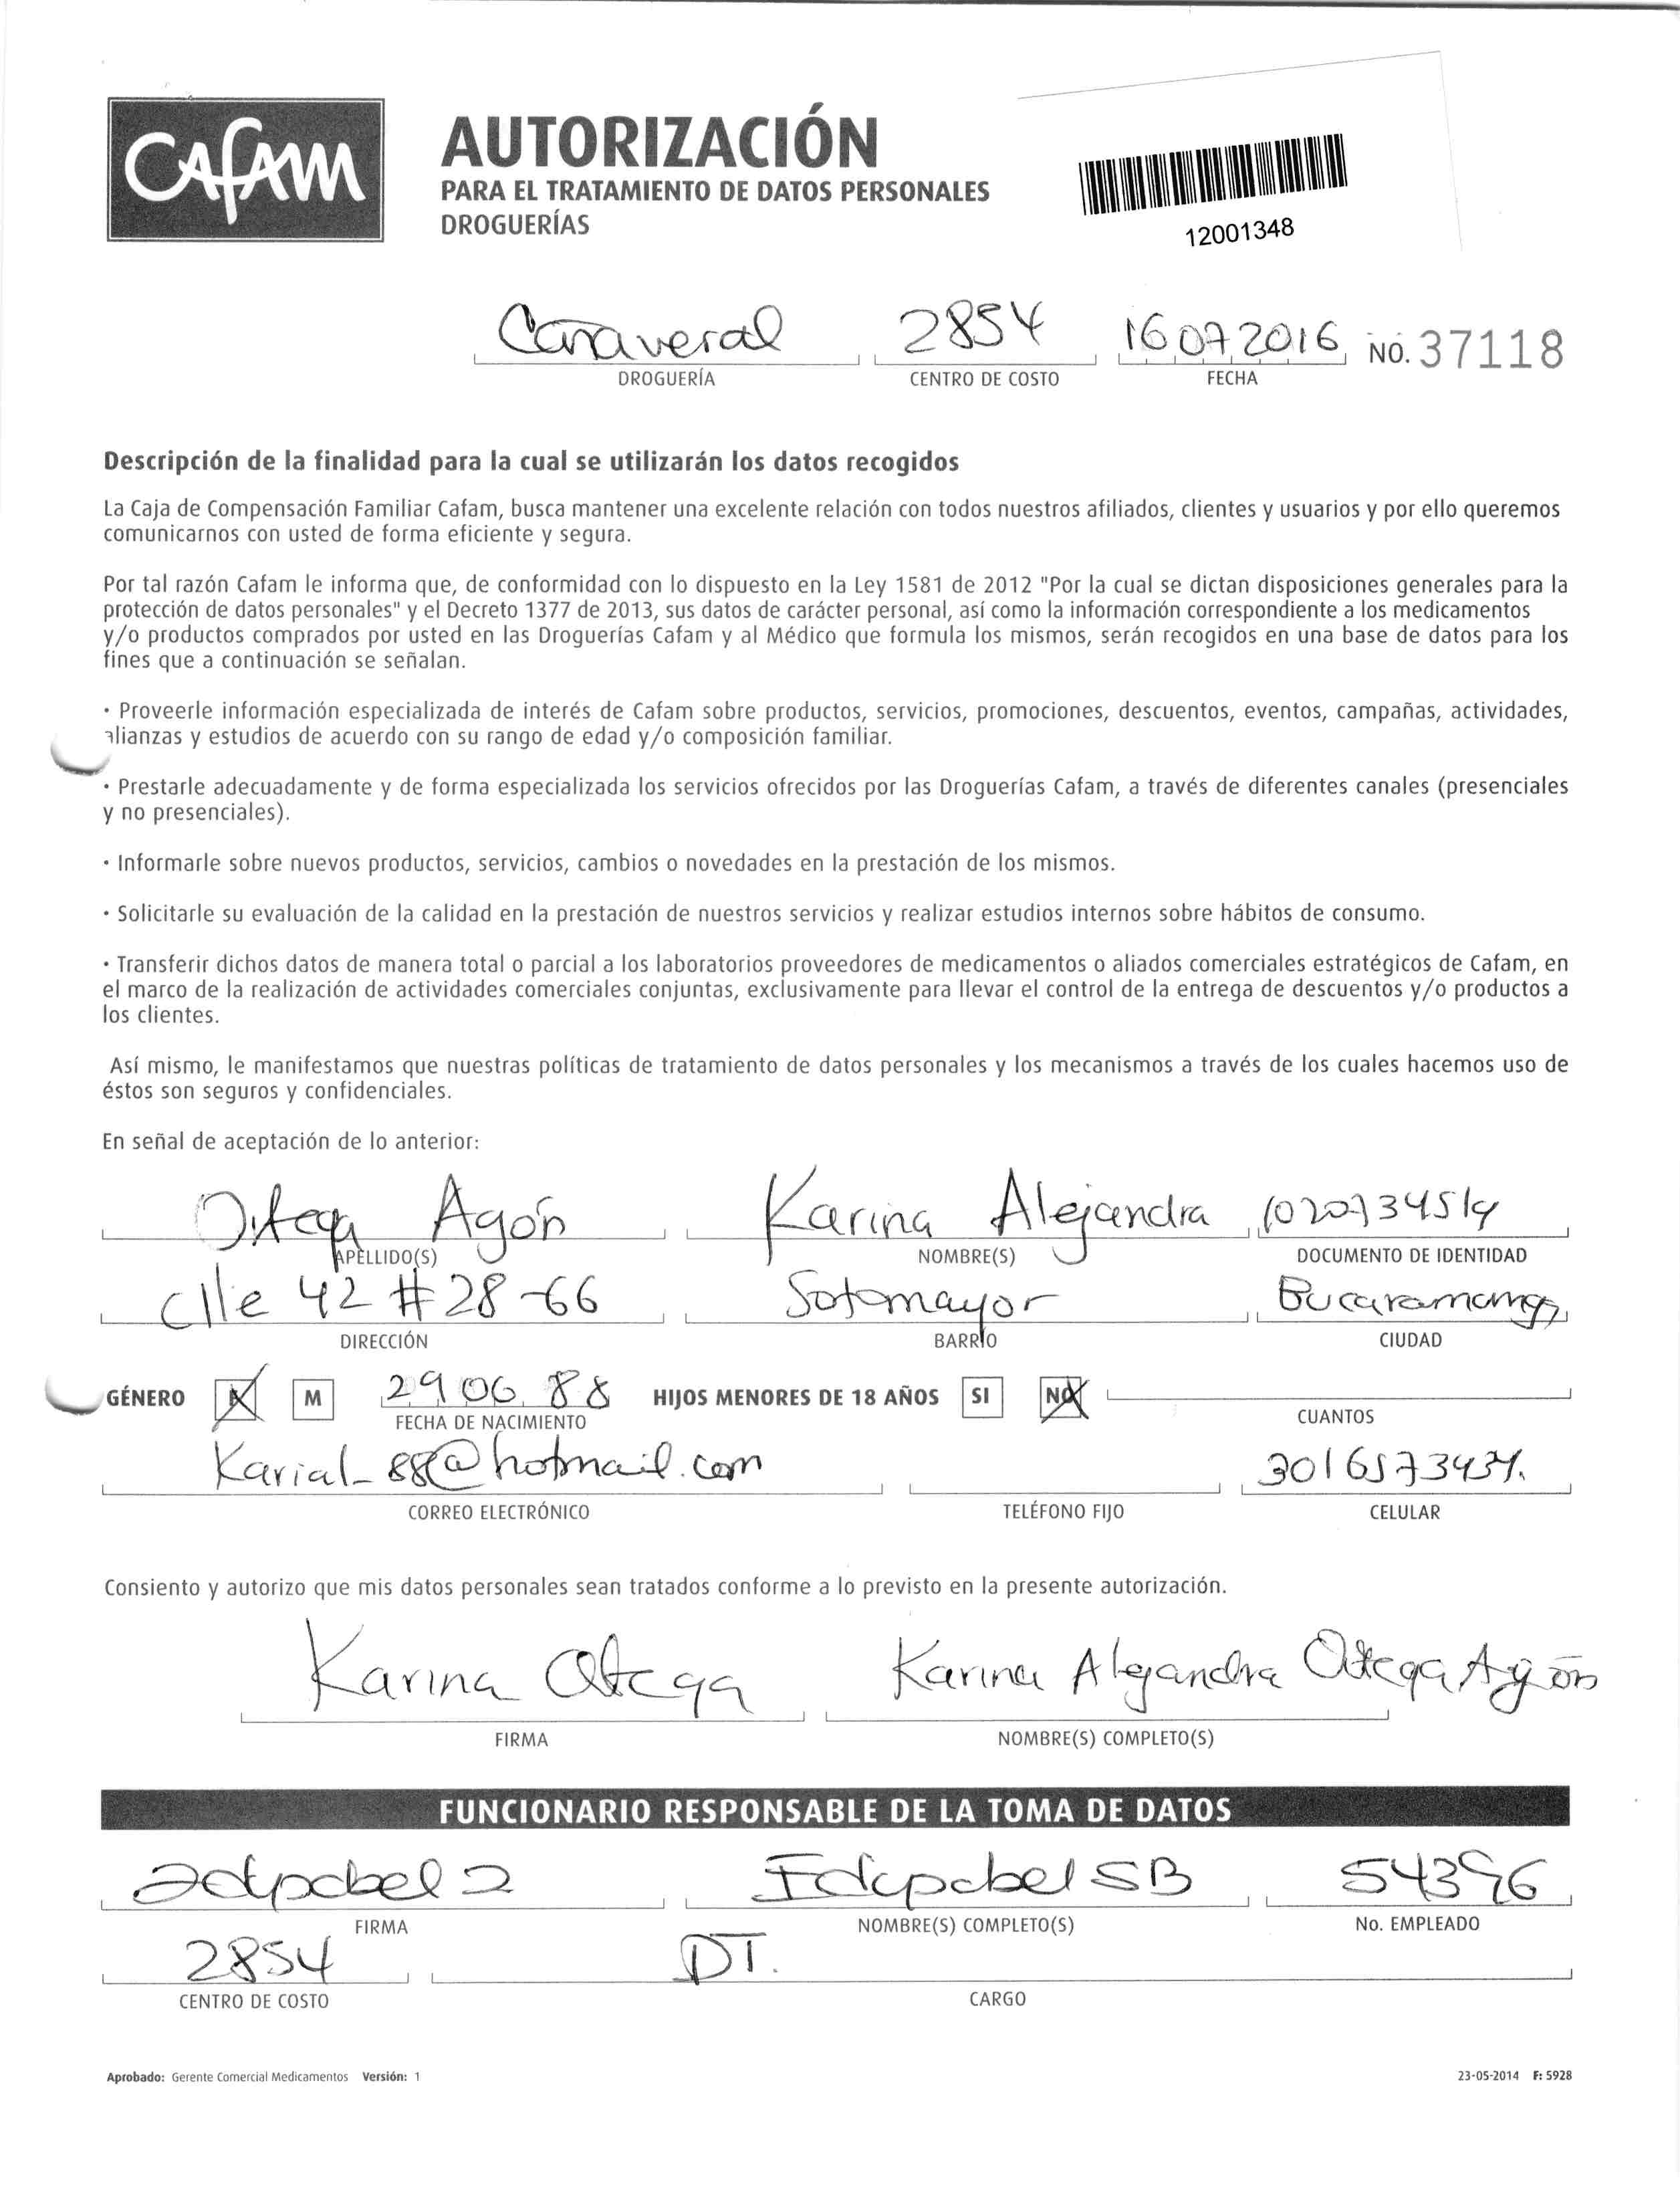 CAFAM
AUTORIZACIÓN
PARA EL TRATAMIENTO DE DATOS PERSONALES
DROGUERÍAS
12001348
Cañaveral 2854 16 07 2016 NO. 37118
DROGUERÍA CENTRO DE COSTO FECHA
Descripción de la finalidad para la cual se utilizarán los datos recogidos
La Caja de Compensación Familiar Cafam, busca mantener una excelente relación con todos nuestros afiliados, clientes y usuarios y por ello queremos
comunicarnos con usted de forma eficiente y segura.
Por tal razón Cafam le informa que, de conformidad con lo dispuesto en la Ley 1581 de 2012 "Por la cual se dictan disposiciones generales para la
protección de datos personales" y el Decreto 1377 de 2013, sus datos de carácter personal, así como la información correspondiente a los medicamentos
y/o productos comprados por usted en las Droguerías Cafam y al Médico que formula los mismos, serán recogidos en una base de datos para los
fines que a continuación se señalan.
· Proveerle información especializada de interés de Cafam sobre productos, servicios, promociones, descuentos, eventos, campañas, actividades,
alianzas y estudios de acuerdo con su rango de edad y/o composición familiar.
· Prestarle adecuadamente y de forma especializada los servicios ofrecidos por las Droguerías Cafam, a través de diferentes canales (presenciales
y no presenciales).
· Informarle sobre nuevos productos, servicios, cambios o novedades en la prestación de los mismos.
· Solicitarle su evaluación de la calidad en la prestación de nuestros servicios y realizar estudios internos sobre hábitos de consumo.
· Transferir dichos datos de manera total o parcial a los laboratorios proveedores de medicamentos o aliados comerciales estratégicos de Cafam, en
el marco de la realización de actividades comerciales conjuntas, exclusivamente para llevar el control de la entrega de descuentos y/o productos a
los clientes.
Así mismo, le manifestamos que nuestras políticas de tratamiento de datos personales y los mecanismos a través de los cuales hacemos uso de
éstos son seguros y confidenciales.
En señal de aceptación de lo anterior:
Ortega Agón Karina Alejandra 1020734514
APELLIDO(S) NOMBRE(S) DOCUMENTO DE IDENTIDAD
Clle 42 # 28-66 Sotomayor Bucaramanga
DIRECCIÓN BARRIO CIUDAD
GÉNERO M 29 06 88 HIJOS MENORES DE 18 AÑOS SI NO
FECHA DE NACIMIENTO CUANTOS
Karial_88@hotmail.com
CORREO ELECTRÓNICO TELÉFONO FIJO CELULAR
Consiento y autorizo que mis datos personales sean tratados conforme a lo previsto en la presente autorización.
Karina Ortega Karina Alejandra Ortega Agón
FIRMA NOMBRE(S) COMPLETO(S)
FUNCIONARIO RESPONSABLE DE LA TOMA DE DATOS
SB 54396
FIRMA NOMBRE(S) COMPLETO(S) No. EMPLEADO
2854 DT.
CENTRO DE COSTO CARGO
Aprobado: Gerente Comercial Medicamentos Versión: 1 23-05-2014 F: 5928